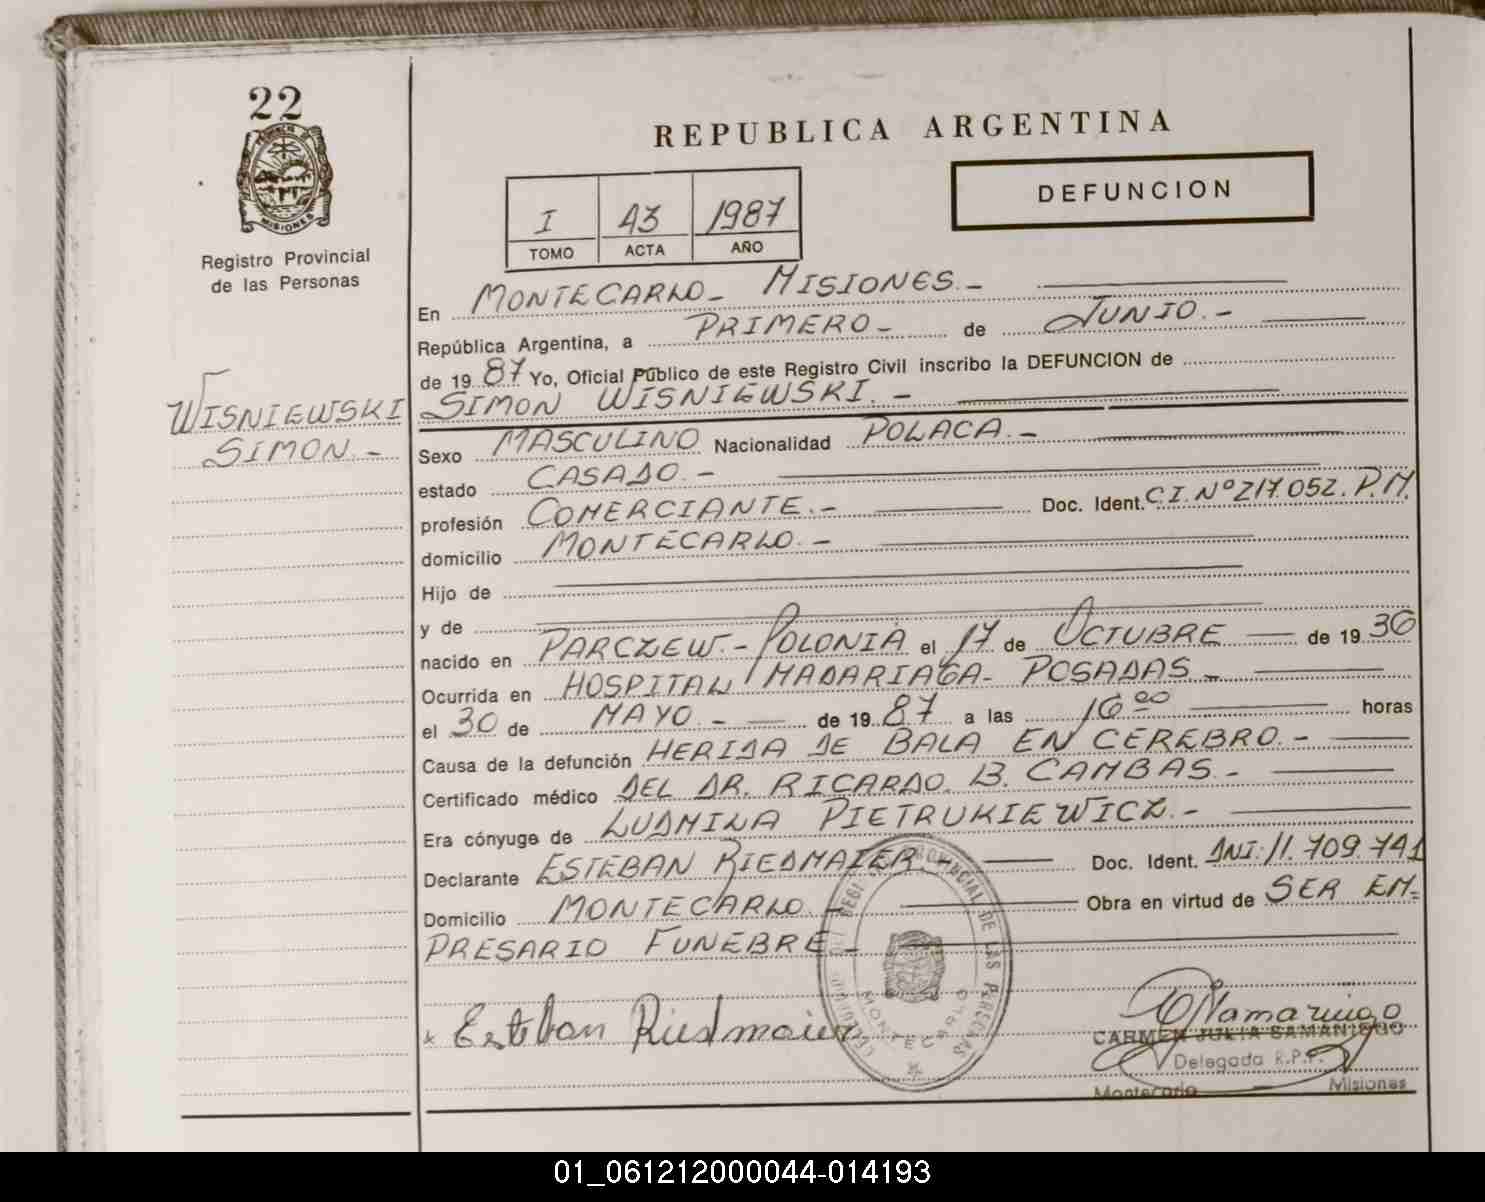 22
PROVINCIA DE
MISIONES
Registro Provincial
de las Personas
WISNIEWSKI
SIMON.-
REPUBLICA ARGENTINA
DEFUNCION
I 43 1987
TOMO ACTA AÑO
En MONTECARLO_ MISIONES.-
República Argentina, a PRIMERO- de JUNIO.-
de 19 87 Yo, Oficial Público de este Registro Civil inscribo la DEFUNCION de
SIMON WISNIEWSKI.-
Sexo MASCULINO Nacionalidad POLACA.-
estado CASADO.-
profesión COMERCIANTE.- Doc. Ident. C.I. Nº 217.052. P.M.
domicilio MONTECARLO.-
Hijo de
y de
nacido en PARCZEW.- POLONIA el 17 de OCTUBRE de 19 36
Ocurrida en HOSPITAL MADARIAGA- POSADAS-
el 30 de MAYO.- de 19 87 a las 16 00 horas
Causa de la defunción HERIDA DE BALA EN CEREBRO.-
Certificado médico DEL DR. RICARDO. B. CAMBAS.-
Era cónyuge de LUDMILA PIETRUKIEWICZ.-
Declarante ESTEBAN RIEDMAIER.- Doc. Ident. DNI: 11.709.741
Domicilio MONTECARLO.- Obra en virtud de SER EM-
PRESARIO FUNEBRE-
x Esteban Riedmaier
PROVINCIAL DE LAS PERSONAS
MONTECARLO
CSamaniego
CARMEN JULIA SAMANIEGO
Delegada R.P.P.
Montecarlo Misiones
01_061212000044-014193